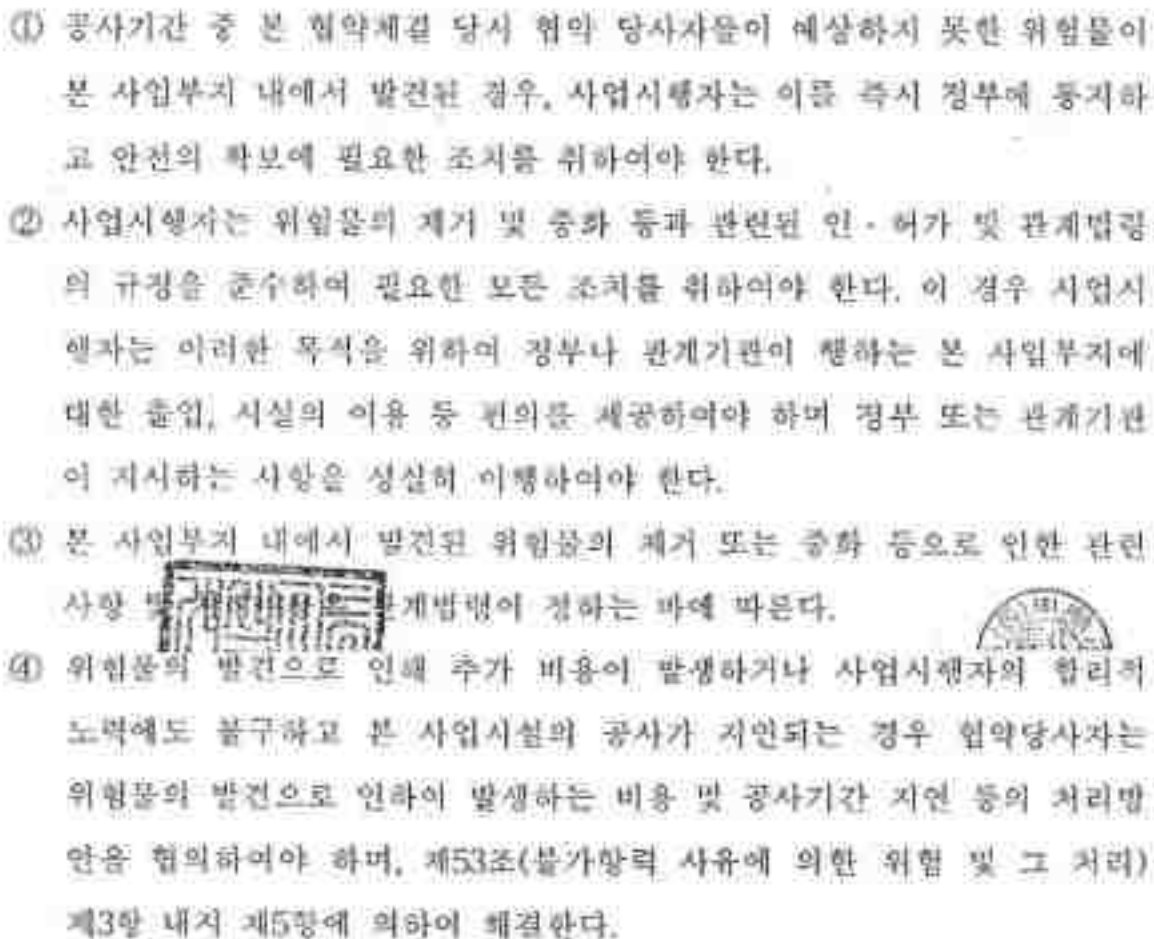 ① 공사기간 중 본 협약체결 당시 협약 당사자들이 예상하지 못한 위험물이
본 사업부지 내에서 발견된 경우, 사업시행자는 이를 즉시 정부에 통지하
고 안전의 확보에 필요한 조치를 취하여야 한다.
② 사업시행자는 위험물의 제거 및 중화 등과 관련된 인·허가 및 관계법령
의 규정을 준수하여 필요한 모든 조치를 취하여야 한다. 이 경우 사업시
행자는 이러한 목적을 위하여 정부나 관계기관이 행하는 본 사업부지에
대한 출입, 시설의 이용 등 편의를 제공하여야 하며 정부 또는 관계기관
이 지시하는 사항을 성실히 이행하여야 한다.
③ 본 사업부지 내에서 발견된 위험물의 제거 또는 중화 등으로 인한 관련
사항 및 관계법령이 정하는 바에 따른다.
④ 위험물의 발견으로 인해 추가 비용이 발생하거나 사업시행자의 합리적
노력에도 불구하고 본 사업시설의 공사가 지연되는 경우 협약당사자는
위험물의 발견으로 인하여 발생하는 비용 및 공사기간 지연 등의 처리방
안을 협의하여야 하며, 제53조(불가항력 사유에 의한 위험 및 그 처리)
제3항 내지 제5항에 의하여 해결한다.